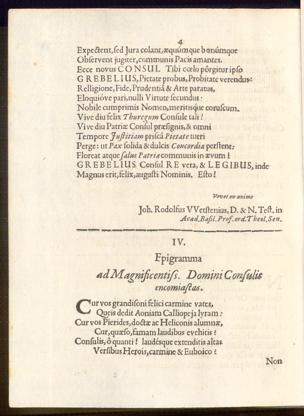 4
Expectent, sed Jura colant, æquúmque bonúmque
Observent jugiter, communis Pacis amantes.
Ecce novus CONSUL Tibi cœlo pôrgitur ipso
GREBELIUS, Pietate probus, Probitate verendus:
Relligione, Fide, Prudentiâ & Arte paratus,
Eloquióve pari, nulli Virtute secundus:
Nobile cumprimis Nomen, meritisque coruscum.
Vive diu felix Thuregum Consule tali!
Vive diu Patriæ Consul præsignis, & omni
Tempore Justitiam priscâ Pietate tueri
Perge: ut Pax solida & dulcis Concordia perstent:
Floreat atque salus Patriæ communis in ævum!
GREBELIUS Consul RE vera, & LEGIBUS, inde
Magnus erit, felix, augusti Nominis. Esto!
Vovet ex animo
Joh. Rodolfus VVetstenius, D. & N. Test. in
Acad. Basil. Prof. ord. Theol. Sen.
IV.
Epigramma
ad Magnificentiss. Domini Consulis
encomiastas.
Cur vos grandisoni felici carmine vates,
Queis dedit Aoniam Calliopeja lyram?
Cur vos Pierides, doctæ ac Heliconis alumnæ,
Cur, quæso, famam laudibus evehitis?
Consulis, ô quanti! laudésque extenditis altas
Versibus Herois, carmine & Euboico?
Non